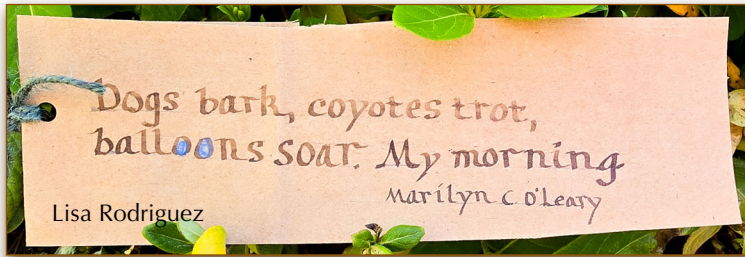 Dogs bark, coyotes trot,
balloons soar. My morning
Marilyn C O'Leary
Lisa Rodriguez